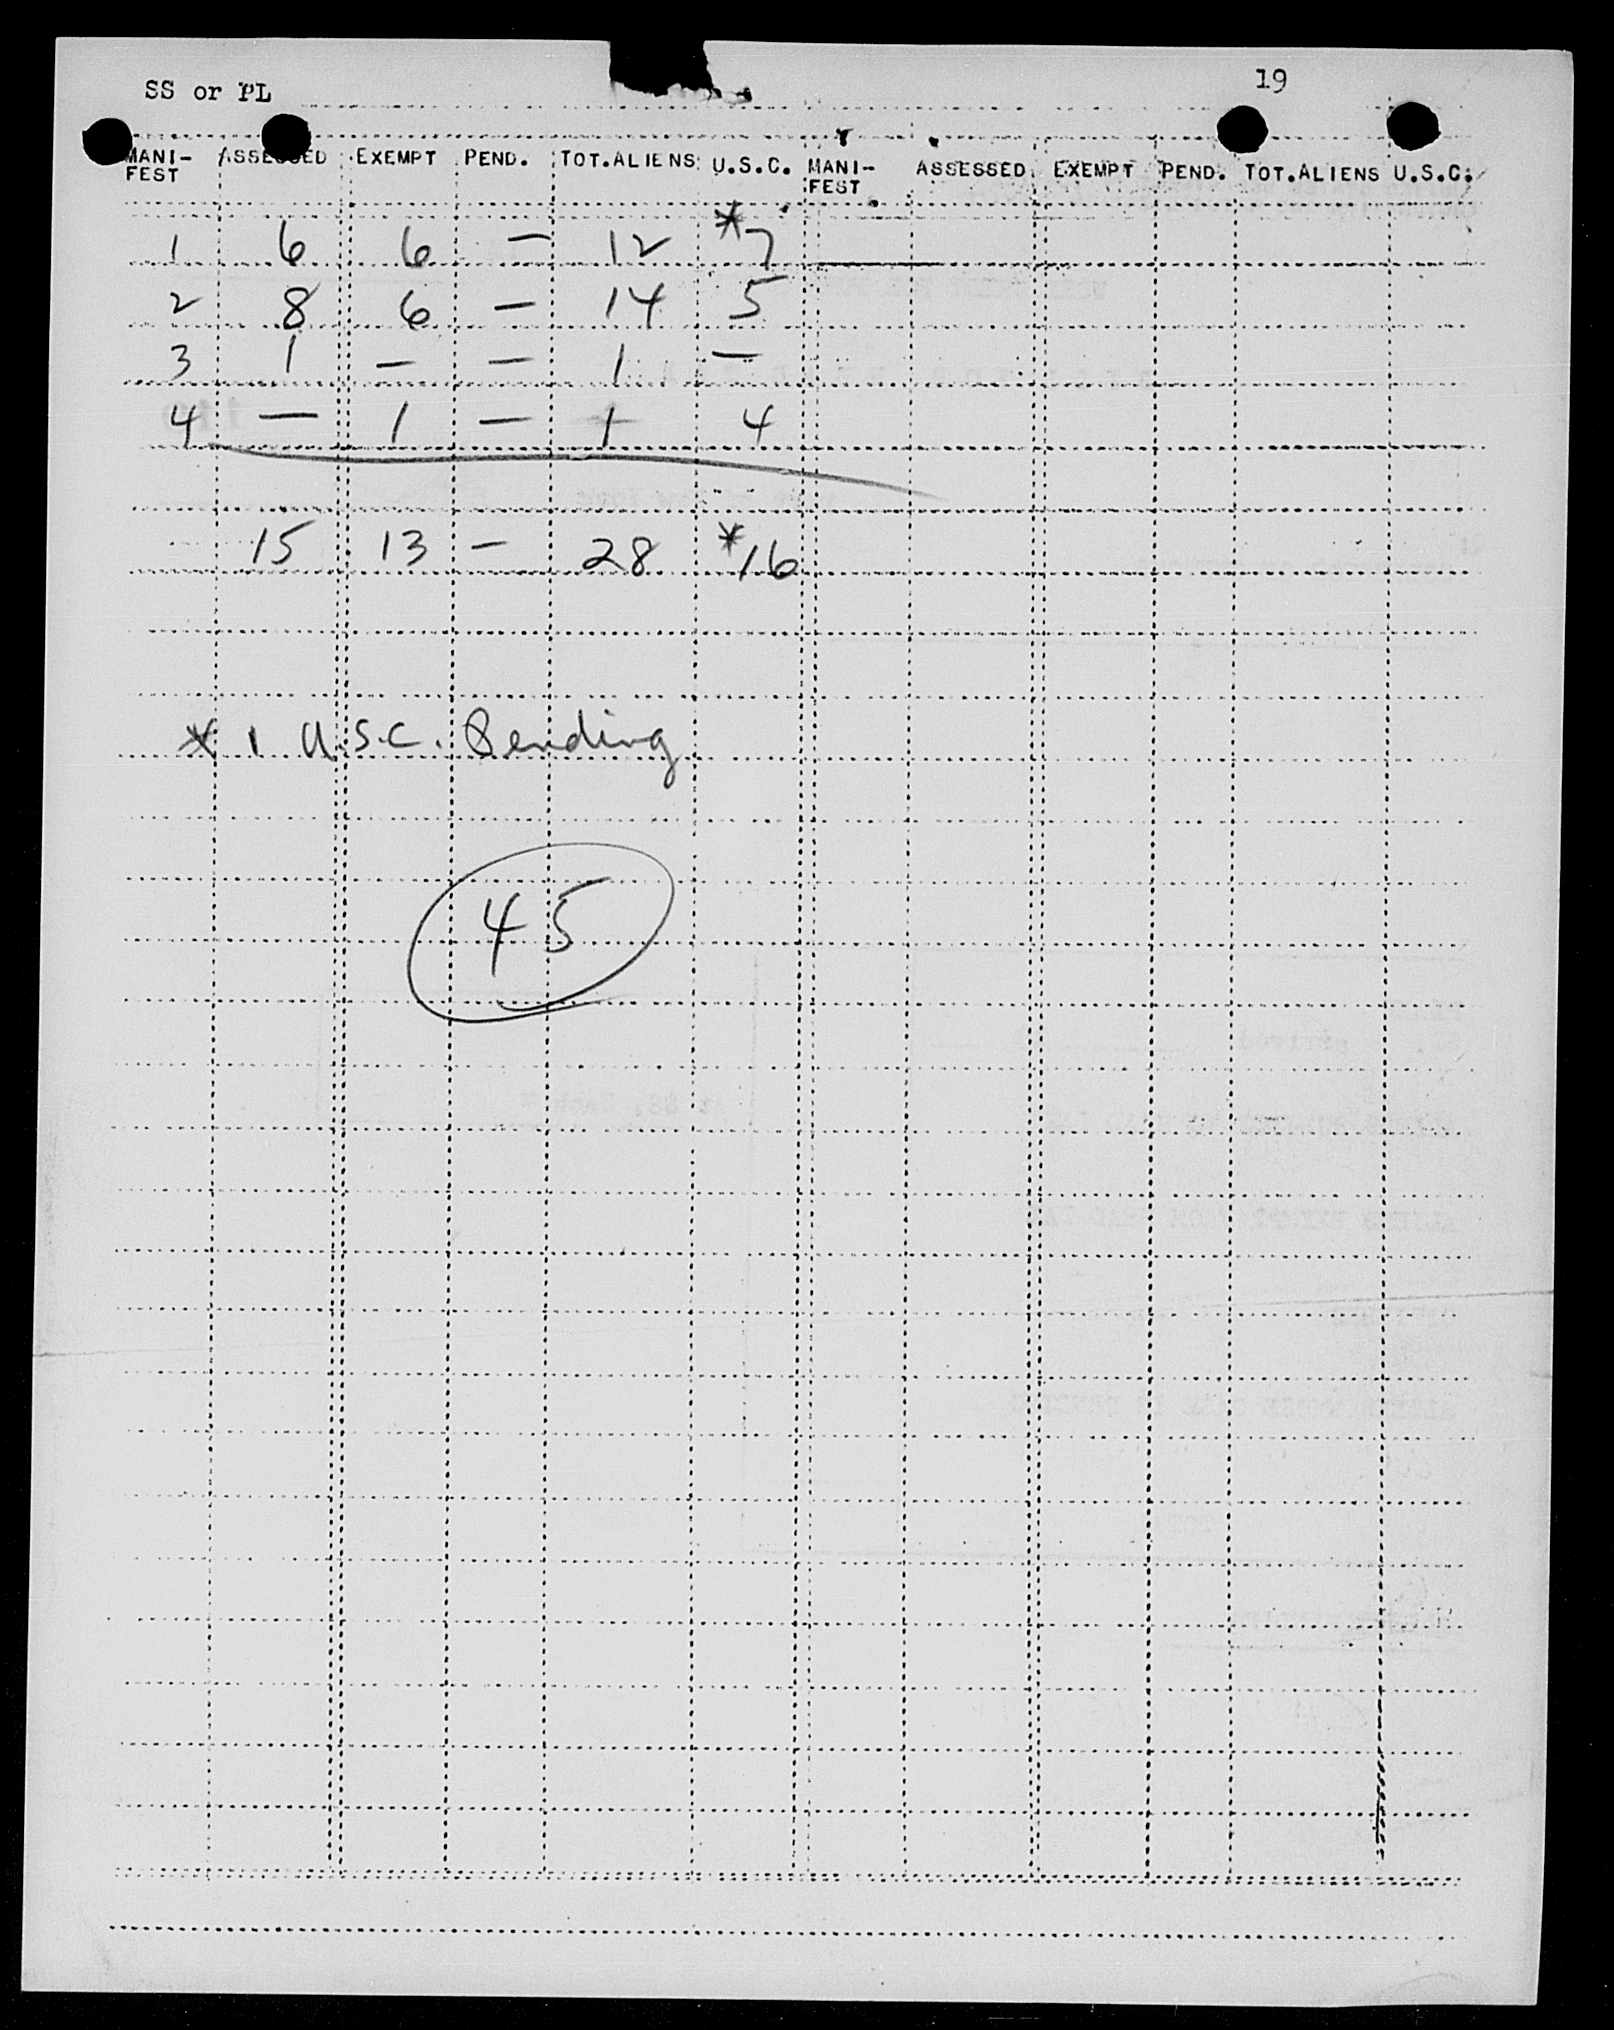 SS or PL 19
MANI- ASSESSED EXEMPT PEND. TOT.ALIENS U.S.C. MANI- ASSESSED EXEMPT PEND. TOT.ALIENS U.S.C.
FEST FEST
1 6 6 — 12 *7
2 8 6 — 14 5
3 1 — — 1 —
4 — 1 — 1 4
15 13 — 28 *16
* 1 U.S.C. Pending
45